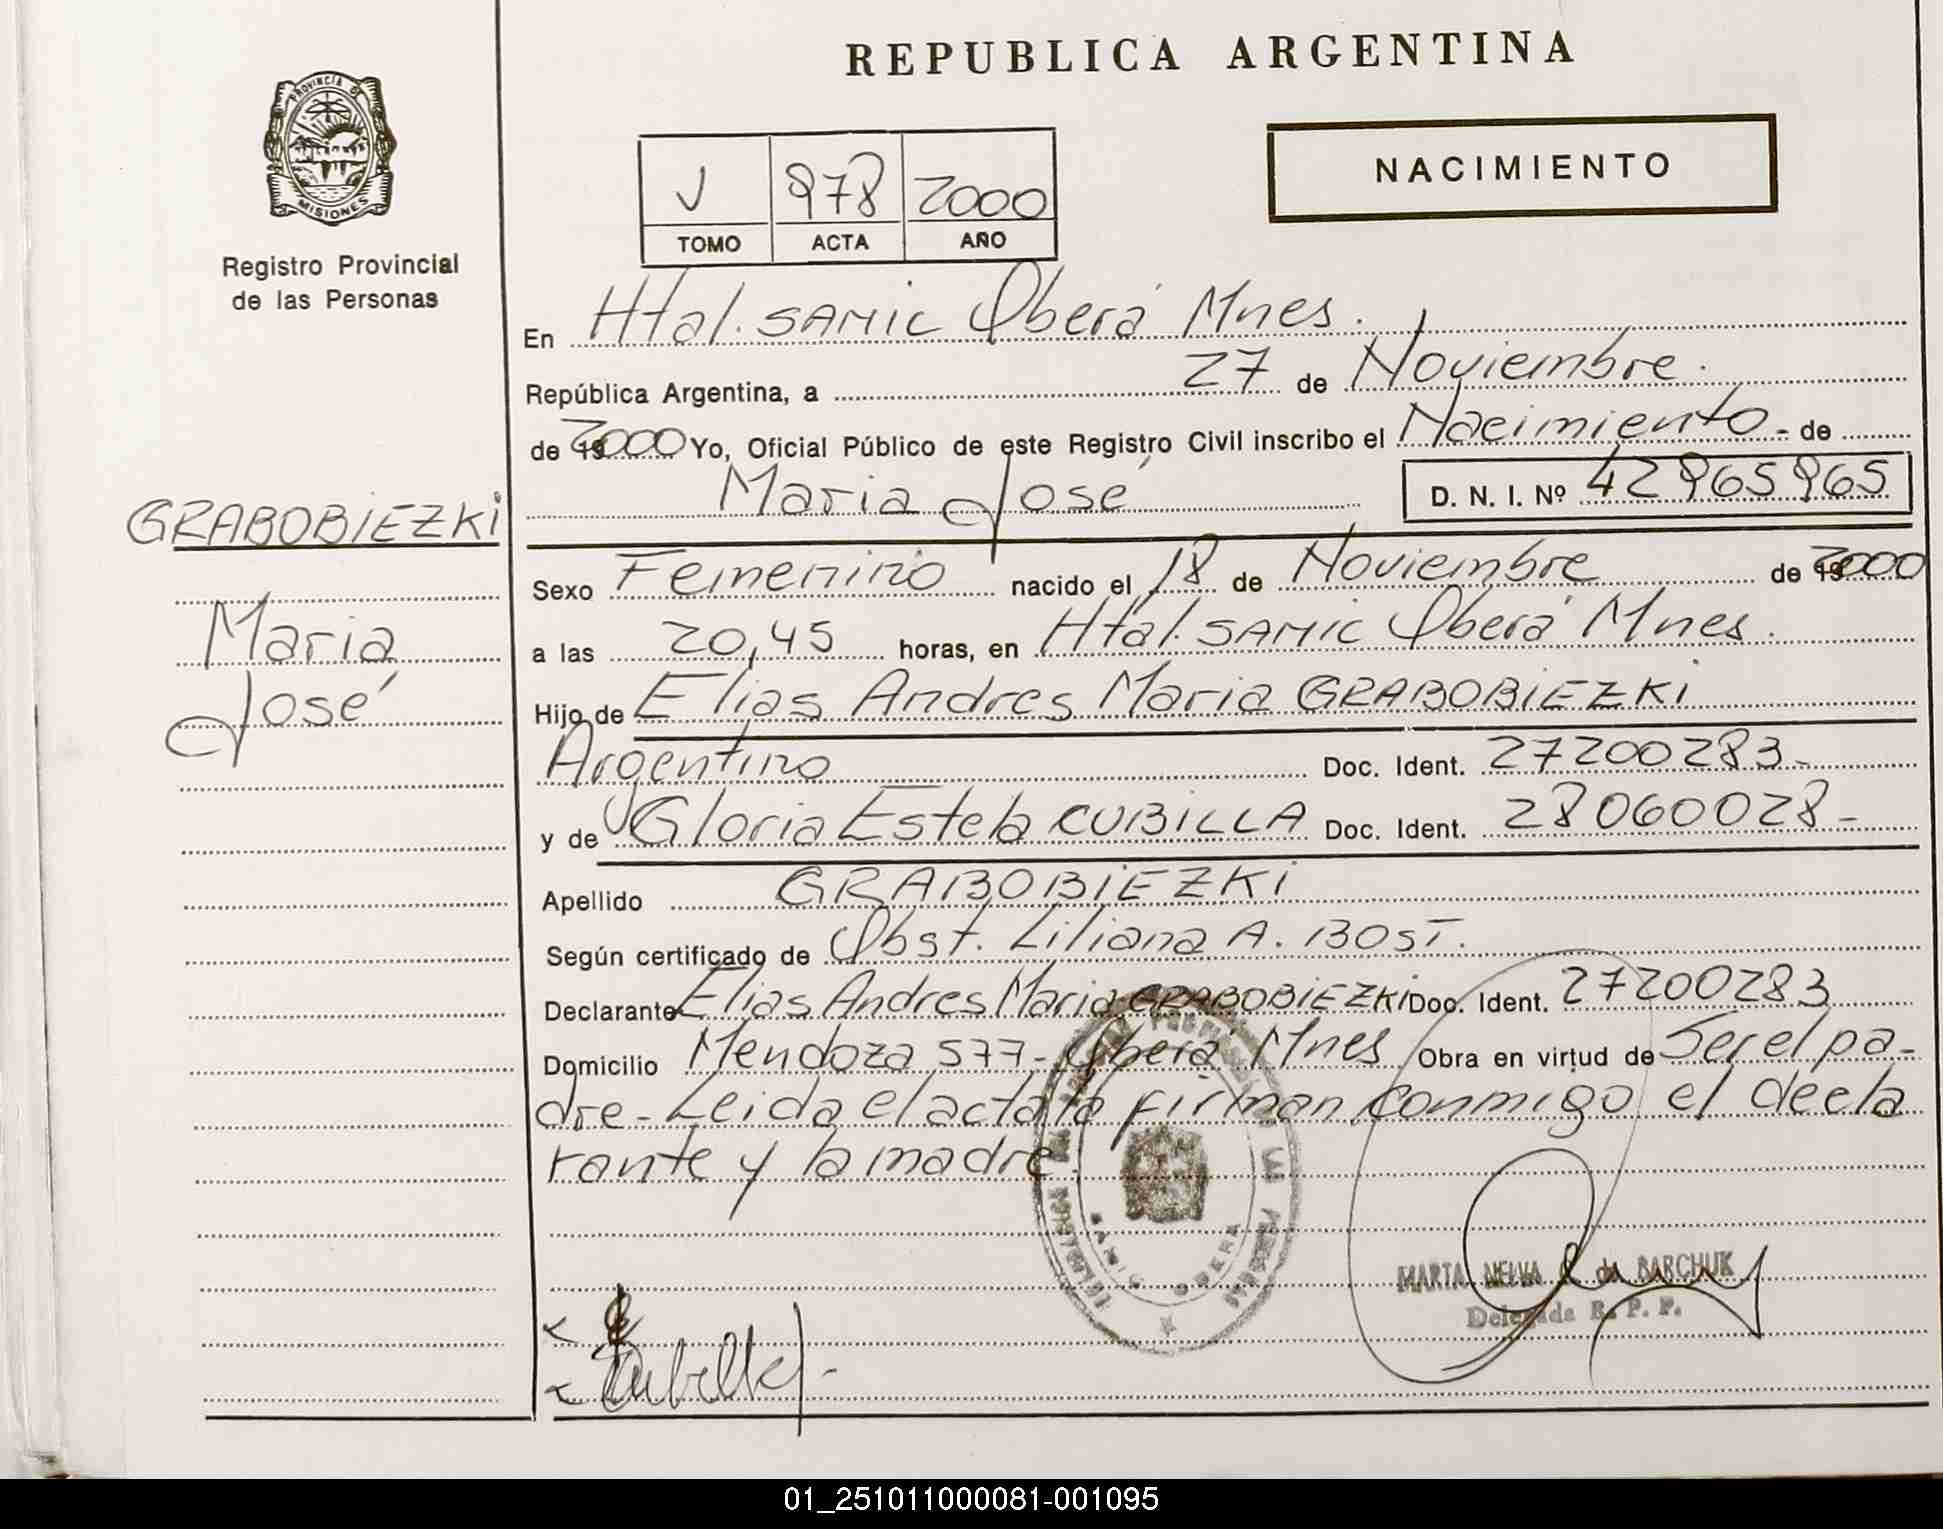 REPUBLICA ARGENTINA
PROVINCIA DE
MISIONES
Registro Provincial
de las Personas
V 978 2000
TOMO ACTA AÑO
NACIMIENTO
En Htal. SAMIC Oberá Mnes.
República Argentina, a 27 de Noviembre.
de 2000 Yo, Oficial Público de este Registro Civil inscribo el Nacimiento - de
Maria José
D. N. I. Nº 42965965
GRABOBIEZKI
Maria
José
Sexo Femenino nacido el 18 de Noviembre de 2000
a las 20,45 horas, en Htal. SAMIC Oberá Mnes.
Hijo de Elias Andres Maria GRABOBIEZKI
Argentino Doc. Ident. 27200283-
y de Gloria Estela CUBILLA Doc. Ident. 28060028-
Apellido GRABOBIEZKI
Según certificado de Obst. Liliana A. BOST.
Declarante Elias Andres Maria GRABOBIEZKI Doc. Ident. 27200283
Domicilio Mendoza 577- Oberá Mnes Obra en virtud de Ser el pa-
dre- Leida el acta la firman conmigo el decla
rante y la madre.
MARTA NELVA de BARCHUK
Delegada R. P. P.
01_251011000081-001095